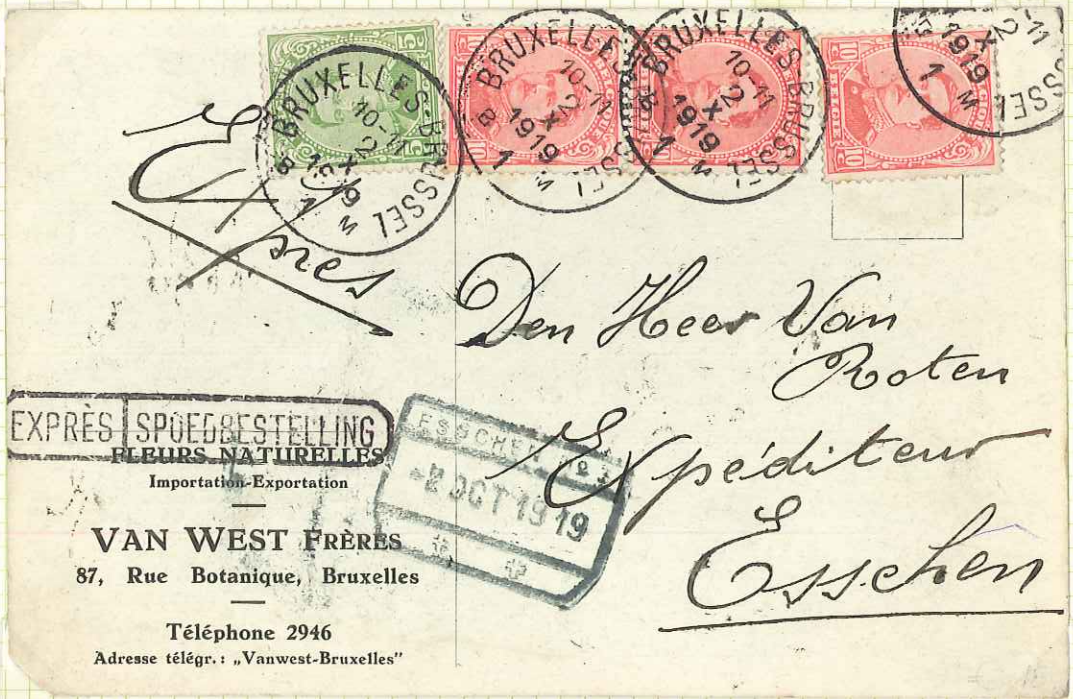 BRUXELLES-BRUSSEL
10-11
2
X
1919
1 M
BRUXELLES
10-11
2
X
1919
1 M
BRUXELLES-BRUSSEL
10-11
2
X
1919
1 M
11
2
X
1919
1 M
SSEL
Expres
Den Heer Van
Roten
Expéditeur
Esschen
EXPRÈS SPOEDBESTELLING
ESSCHEN
2 OCT 1919
FLEURS NATURELLES
Importation-Exportation
VAN WEST FRÈRES
87, Rue Botanique, Bruxelles
Téléphone 2946
Adresse télégr.: „Vanwest-Bruxelles"